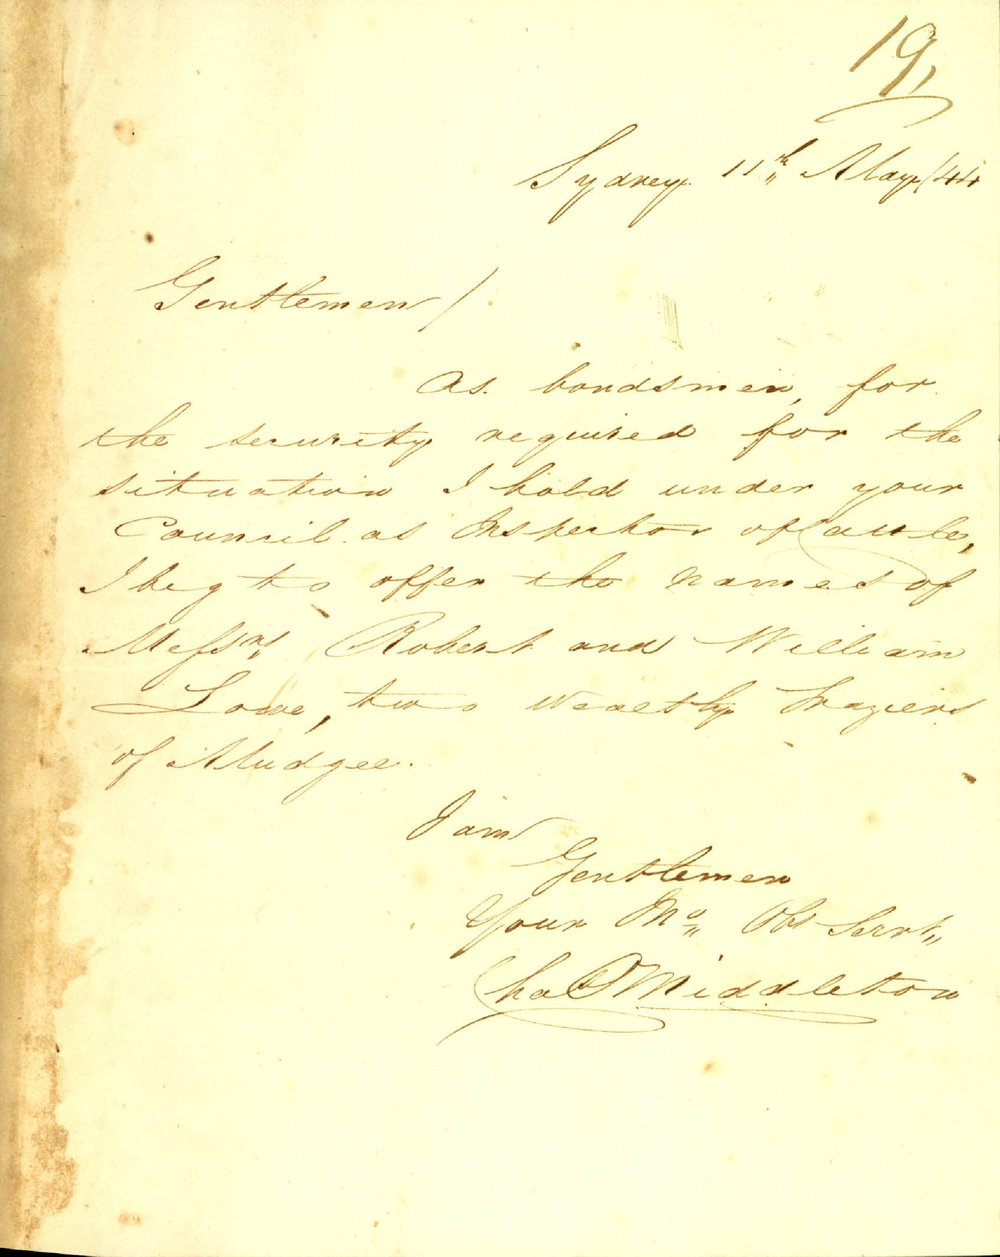 19,
Sydney. 11th May/44
Gentlemen/
As bondsmen, for
the security required for the
situation I hold under your
Council as Inspector of Cattle,
I beg to offer the names of
Messrs, Robert and William
Lowe, two wealthy Graziers
of Mudgee.
I am
Gentlemen
Your Mo, Obt Servt,
Chas Middleton